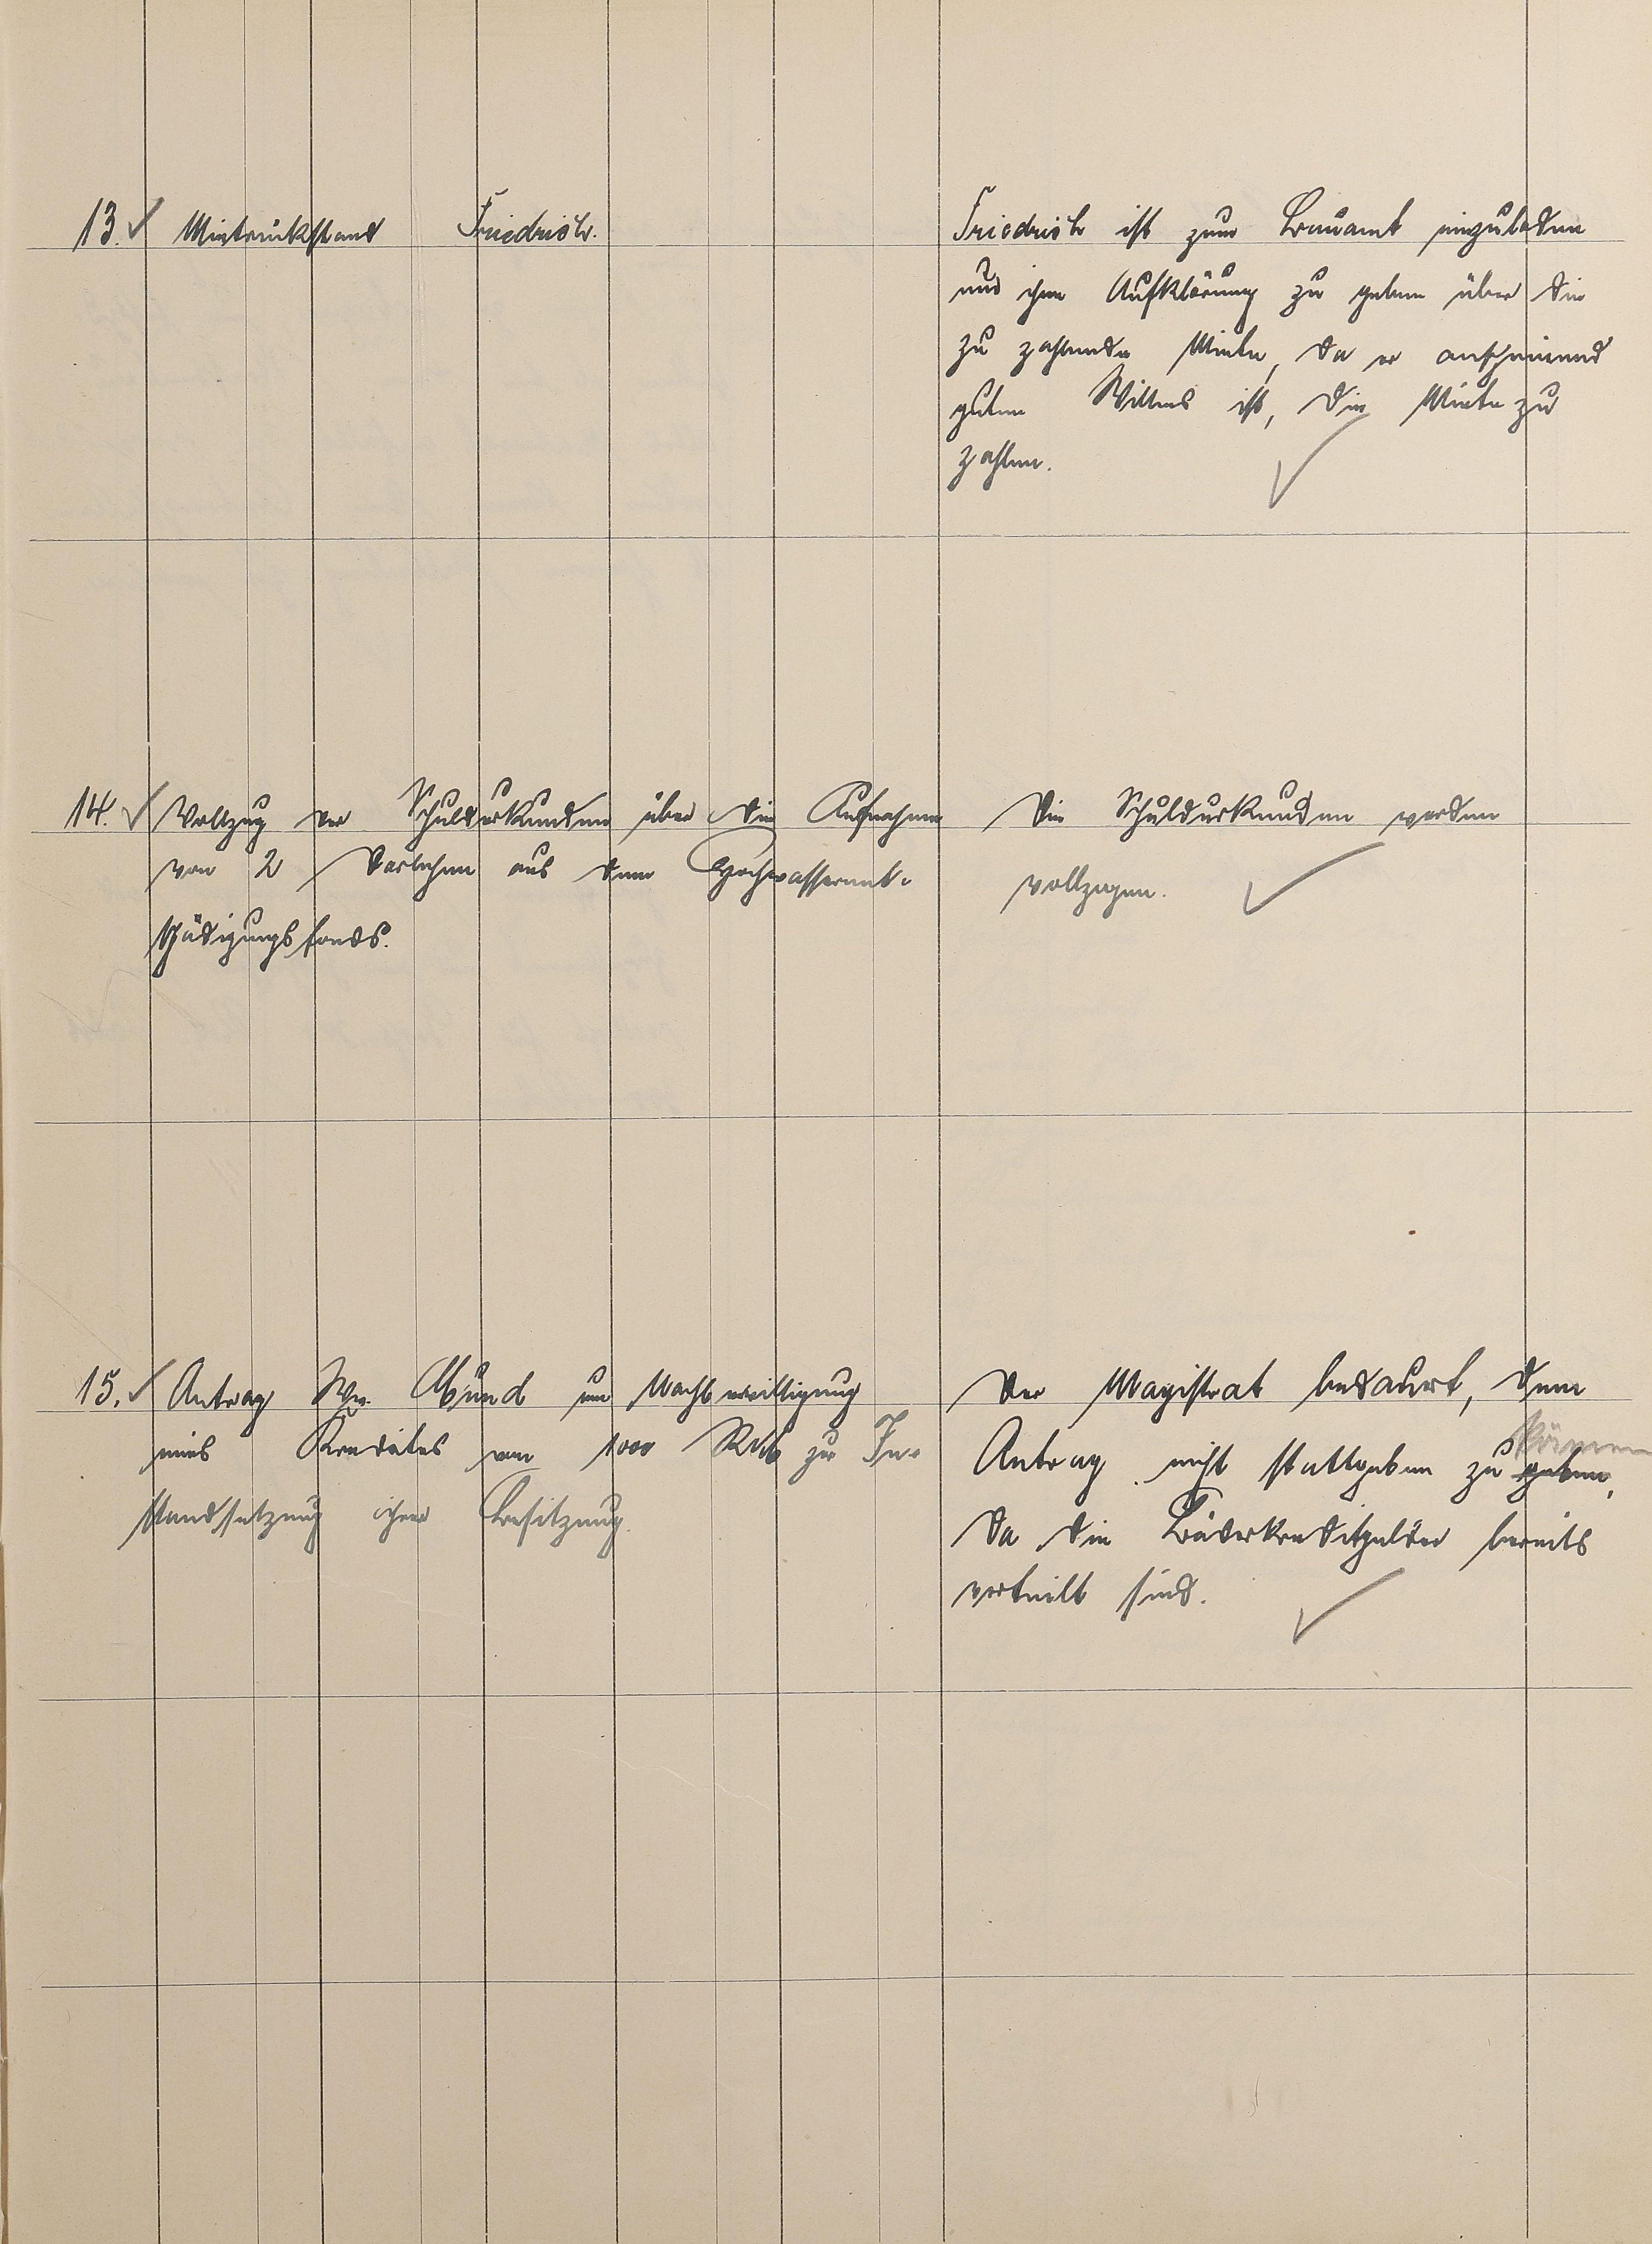 13. Mietrückstand Friedrich.
Friedrich ist zum Bauamt einzuladen
und ihm Aufklärung zu geben über die
zu zahlende Miete, da er anscheinend
guten Willens ist, die Miete zu
zahlen.
14. Vollzug der Schuldurkunden über die Aufnahme
von 2 Darlehen aus dem Hochwasserent-
schädigungsfonds.
Die Schuldurkunden werden
vollzogen.
15. Antrag Ww. um Nachbewilligung
eines Kredites von 1000 RM zur In-
standsetzung ihrer Besitzung.
Der Magistrat bedauert, dem
Antrag nicht stattgeben zu geben, können
da die Bäderkreditgelder bereits
verteilt sind.